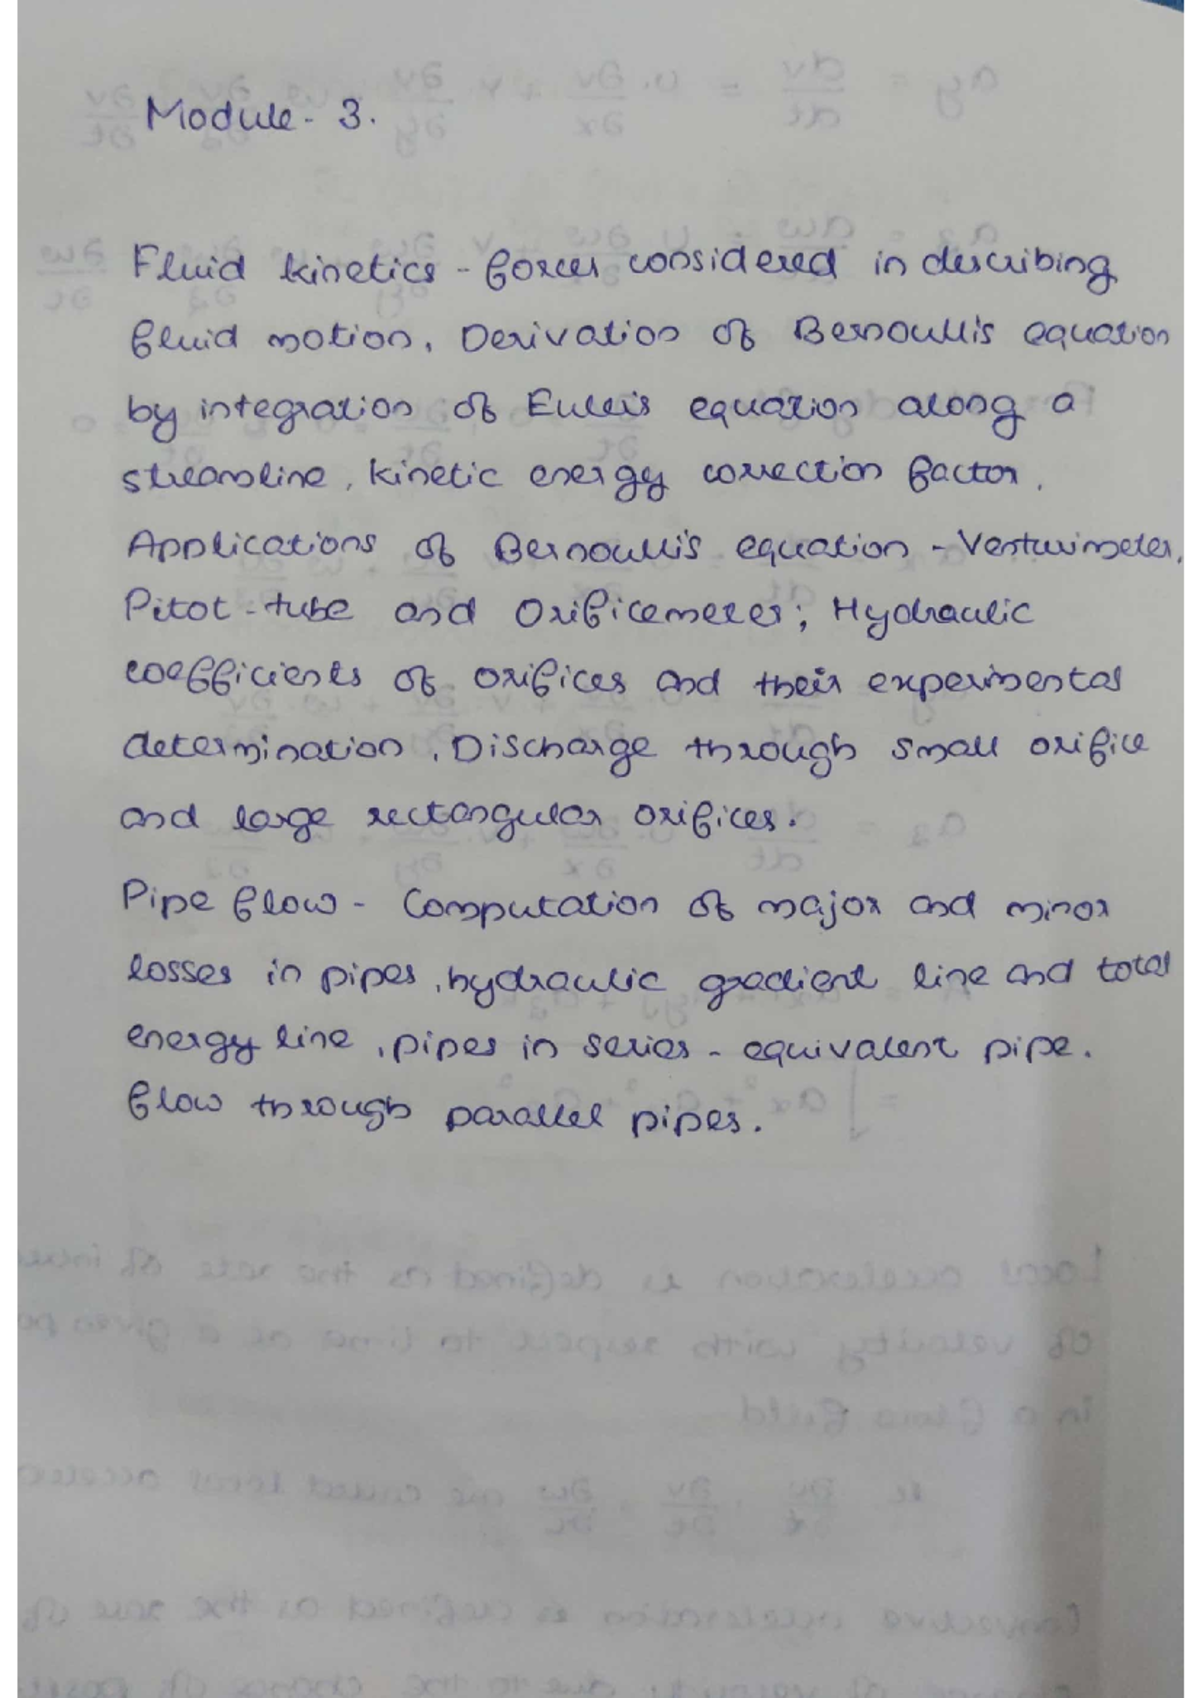 Module - 3.
Fluid kinetics - forces considered in describing
fluid motion, Derivation of Bernoulli's equation
by integration of Euler's equation along a
streamline, kinetic energy correction factor,
Applications of Bernoulli's equation - Venturimeter,
Pitot-tube and Orificemeter; Hydraulic
coefficients of orifices and their experimental
determination, Discharge through small orifice
and large rectangular orifices.
Pipe flow - Computation of major and minor
losses in pipes, hydraulic gradient line and total
energy line, pipes in series - equivalent pipe.
flow through parallel pipes.